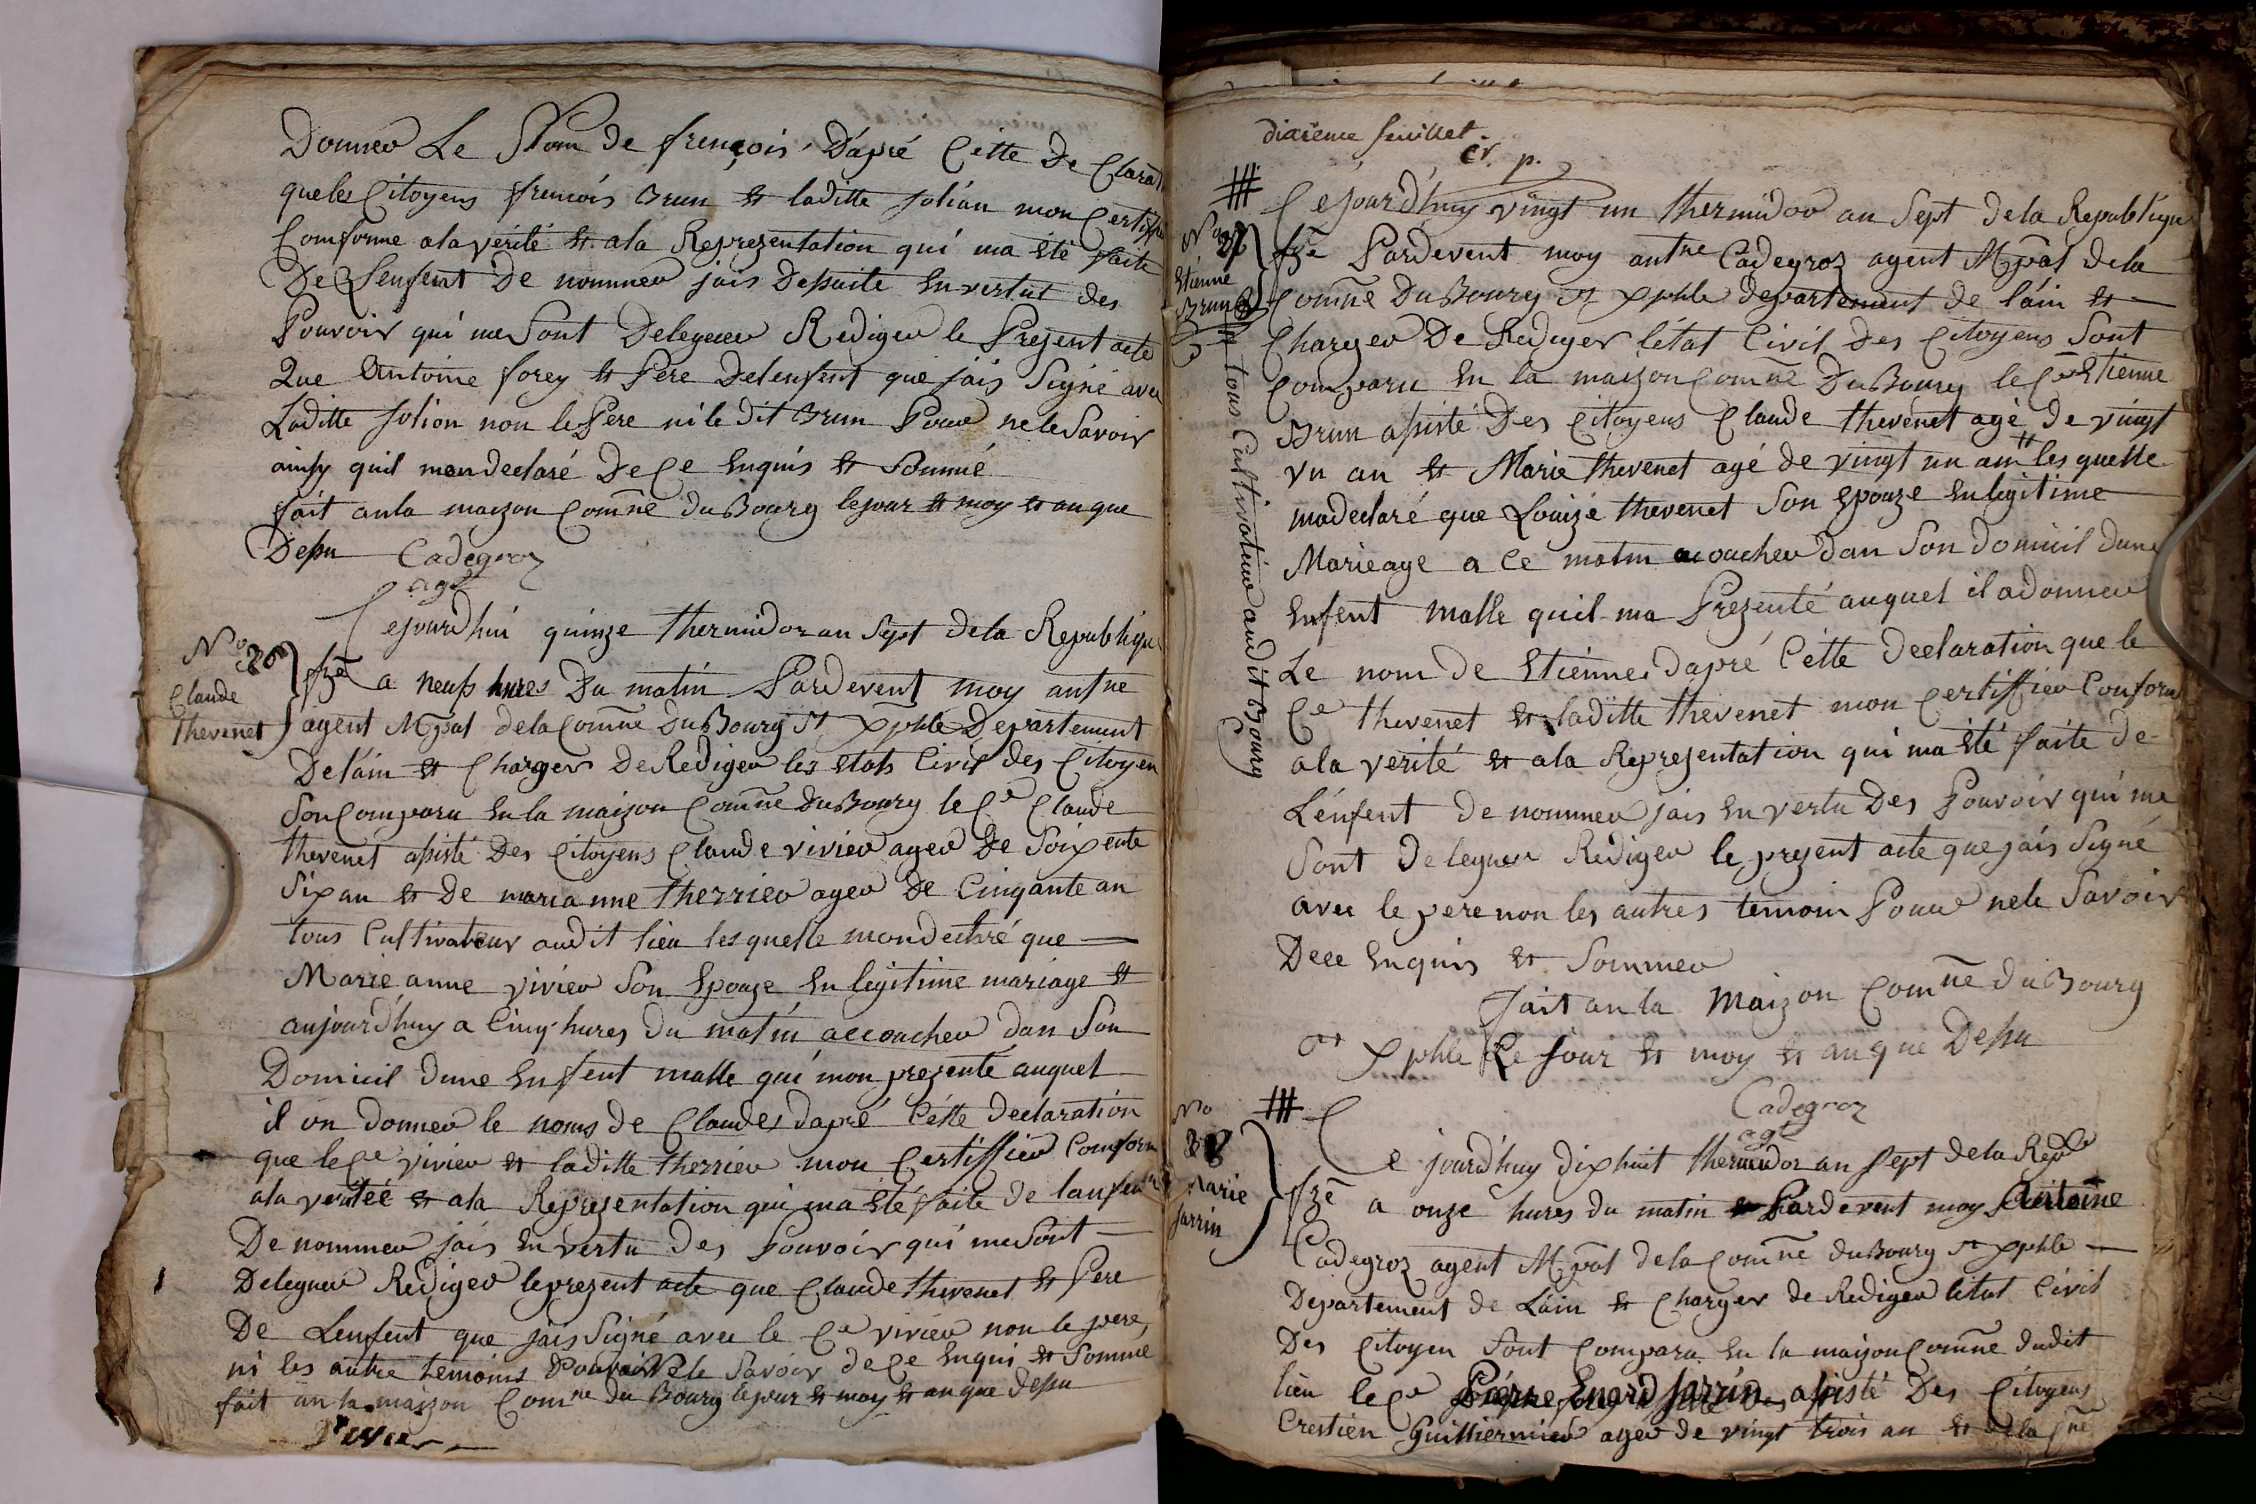 Donner Le Nom de françois, D'apré Cette De Clarat
que les Citoyens francois Brun et laditte Jolian mon Certifié
Comforme a la vérité et a la Reprezentation qui ma été faite
De Lenfent De nommer jais Desuite En vertut des
Pouvoir qui me Sont Deleguer Rediger le Present acte
Que Antoine forey et Pere De lenfent que jais Signé avec
Laditte Jolion non le Pere ni le dit Brun Pour ne le Savoir
ainsy quil mon declaré De Ce Enquis et Sommé
fait anla maizon Comne du Bourg le jour et moy et an que
Desu Cadegroz
agt
N° 26
Claude
thevenet
Cejourdhui quinze thermidor an Sept de la Republique
fze a neufs hures Du matin Pardevent moy antne
agent Mpal de la Comne Du Bourg St Xpphle Departement
De lain et Charger De Rediger les etats Civil des Citoyen
Son Comparu En la maizon Comne Du Bourg le Cen Claude
thevenet assisté Des Citoyens Claude vivier ager De Soixente
Six an et De marianne therrier ager De Cinqante an
tous Cultivateur audit lieu lesquelle mon declaré que
Marie anne vivier Son Epouze En legitime mariage et
aujourdhuy a Cinq hures du matin accoucher dan Son
Domicil Dune Enfent malle qui mon prezenté auquel
il on Donner le noms de Claude, dapré Cette declaration
que le Cen vivier et laditte therrier mon Certiffier Comform
ala veritée et ala Reprezentation qui ma été faite de lanfent
De nommer jais En vertu Des Pouvoir qui me Sont
Deleguer Rediger le prezent acte que Claude thevenet et Pere
De Lenfent que jais Signé avec le Cen vivier non le pere,
ni les autre temoins Pour ne le Savoir de Ce Enqui et Somme
fait an la maizon Comne du Bourg le jour et moy et an que desu
Vivier
dixieme feuillet.
Cr. p.
N° 27
Etienne
Brun
Cejourdhuy vingt un thermidor an Sept de la Republique
fze Pardevent moy antne Cadegroz agent Mpal de la
Comne Du Bourg St Xpphle departement de lain et
Charger De Rediger létat Civil Des Citoyens Sont
Comparu En la maizon Comne Du Bourg le Cen Etienne
Brun assisté Des Citoyens Claude thevenet agé de vingt
vn an et Marie thevenet agé de vingt un an # lesquelle
madeclaré que Louize thevenet Son epouze En legitime
Marieage a Ce matin acoucher dan Son domicil dune
Enfent malle quil ma Prezenté auquel il a donner
Le nom de Etienne, dapré Cette declaration que le
Cen thevenet et laditte thevenet mon Certiffier Conform
ala verité et ala Reprezentation qui ma été faite de
Lénfent de nommer jais En vertu Des Pouvoir qui me
Sont deleguer Rediger le prezent acte que jais Signé
avec le pere non les autres temoin Pour nele Savoir
Dece Enquis et Sommer
fait an la Maizon Comne du Bourg
St Xpphle Le jour et moy et an que Desu
Cadegroz
agt
# tous Cultivateur audit Bourg
N° 28
Marie
Jarrin
Ce jourdhuy dixhuit thermidor an Sept de la Repe
fze a onze hures du matin Pardevent moy Antoine
Cadegroz agent Mpal de la Comne du Bourg St Xpphle
Departement de Lain et Charger de Rediger létat Civil
Des Citoyen Sont Comparu En la maizon Comne dudit
lieu le Cen Jarrin assisté Des Citoyens
Crestien Guilliermier ager de vingt trois an et de la